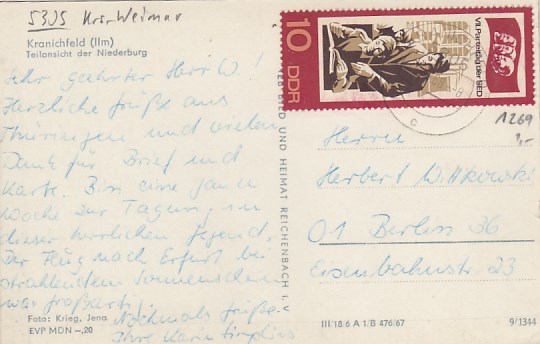 5305 Krs. Weimar
Kranichfeld (Ilm)
Teilansicht der Niederburg
Sehr geehrter Herr W!
Herzliche Grüße aus
Thüringen und vielen
Dank für Brief und
Karte. Bin eine ganze
Woche zur Tagung in
dieser herrlichen Gegend.
Der Flug nach Erfurt bei
strahlendem Sonnenschein
war großartig!
Nochmals Grüße
Ihre Karin
Foto: Krieg, Jena
EVP MDN –,20
BILD UND HEIMAT REICHENBACH I. V
10 DDR
VII. Parteitag der SED
1269
1,-
Herrn
Herbert Wittkowski
01 Berlin 36
Eisenbahnstr. 23
III/18/6 A 1/B 476/67
9/1344